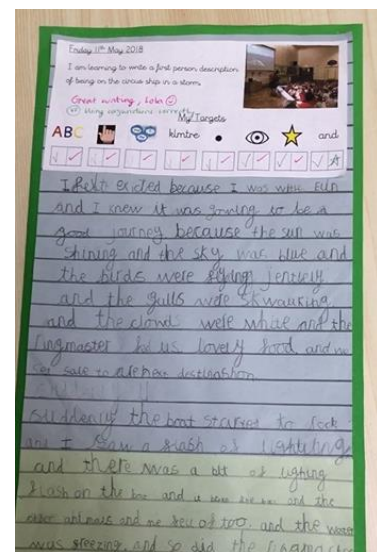 Friday 11th May 2018
I am learning to write a first person description
of being on the circus ship in a storm.
Great writing, Lola
Using conjunctions correctly
My Targets
ABC
kimtre
.
and
I felt exicted because I was with
and I knew it was gowing to be a
good journey because the sun was
shining and the sky was blue and
the birds were flying jentlely
and the gulls were skwauking
and the clouds were white and the
ringmaster us lovely food and we
sale to
suddenly the boat started to rock
and I saw a flash of lightling
and there was a bit of lighting
flash on the and and the
other anlmals and me fell of too, and the water
was freezing and so did the